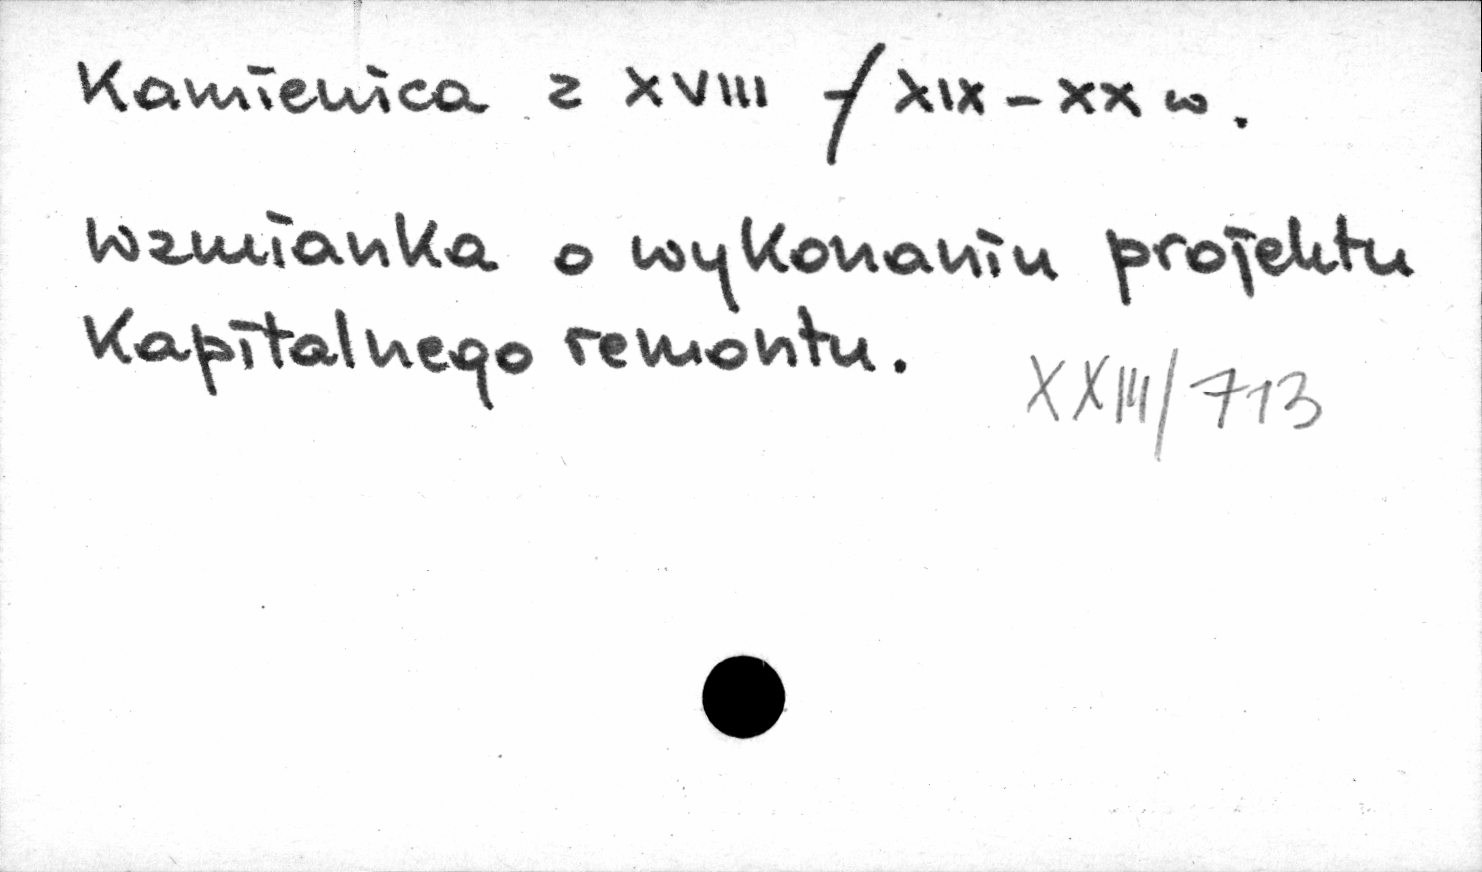 Kamienica z XVIII / XIX - XX w.
Wzmianka o wykonaniu projektu
Kapitalnego remontu.
XXIII/713